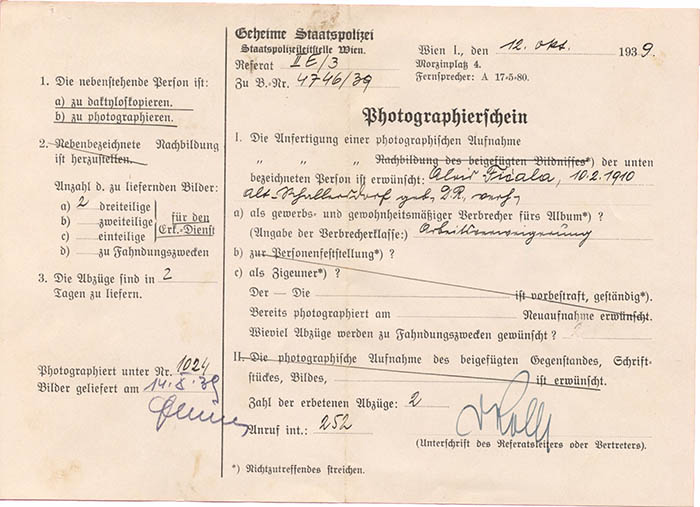 1. Die nebenstehende Person ist:
a) zu daktyloskopieren.
b) zu photographieren.
2. Nebenbezeichnete Nachbildung
ist herzustellen.
Anzahl d. zu liefernden Bilder:
a) 2 dreiteilige
b) zweiteilige
c) einteilige
für den
Erk.-Dienst
d) zu Fahndungszwecken
3. Die Abzüge sind in 2
Tagen zu liefern.
Photographiert unter Nr. 1024
Bilder geliefert am 14.X.39
Geheime Staatspolizei
Staatspolizeileitstelle Wien.
Referat II E/3
Zu B.-Nr. 4746/39
Wien I., den 12. Okt. 1939.
Morzinplatz 4.
Fernsprecher: A 17-5-80.
Photographierschein
I. Die Anfertigung einer photographischen Aufnahme
" " " Nachbildung des beigefügten Bildnisses*) der unten
bezeichneten Person ist erwünscht: Alois Fizala, 10.2.1910
Alt-Schallersdorf geb., D.R., verh.,
a) als gewerbs- und gewohnheitsmäßiger Verbrecher fürs Album*) ?
(Angabe der Verbrecherklasse:) Arbeitsverweigerung
b) zur Personenfeststellung*) ?
c) als Zigeuner*) ?
Der — Die ist vorbestraft, geständig*).
Bereits photographiert am Neuaufnahme erwünscht.
Wieviel Abzüge werden zu Fahndungszwecken gewünscht ?
II. Die photographische Aufnahme des beigefügten Gegenstandes, Schrift-
stückes, Bildes, ist erwünscht.
Zahl der erbetenen Abzüge: 2
Anruf int.: 252
(Unterschrift des Referatsleiters oder Vertreters).
*) Nichtzutreffendes streichen.